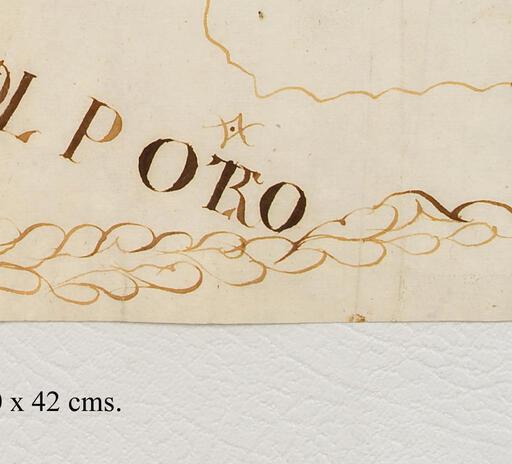 L POTRO
x 42 cms.